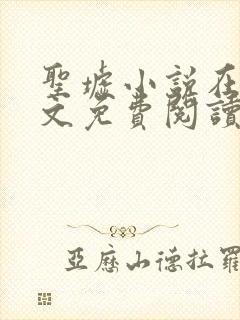 聖墟小説在
文免費閱讀
亞歷山德拉羅